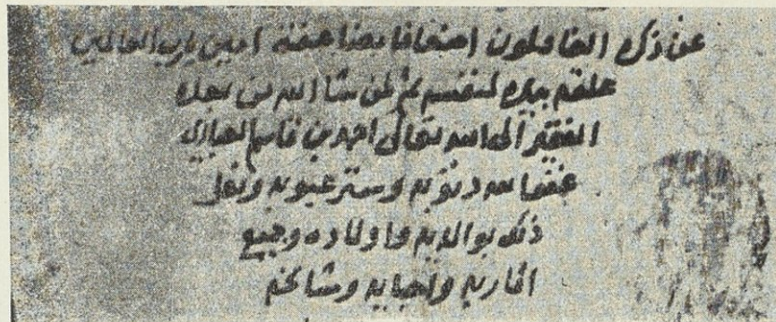 عن ذكره الغافلون اضعافا مضاعفة امين يا رب العالمين
علقه بيده لنفسه ثم لمن شا الله من بعده
الفقير الى الله تعالى احمد بن قاسم العبادي
غفر الله ذنوبه وستر عيوبه وفعل
ذلك بوالديه واولاده وجميع
اقاربه واحبابه ومشائخه